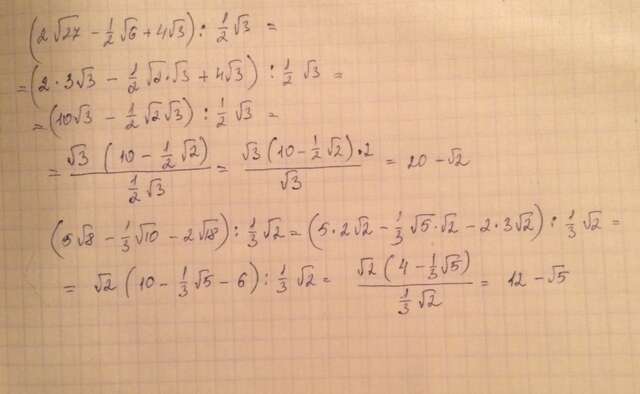 (2√27 − 1/2 √6 + 4√3) : 1/2 √3 =
= (2·3√3 − 1/2 √2·√3 + 4√3) : 1/2 √3 =
= (10√3 − 1/2 √2√3) : 1/2 √3 =
= √3 (10 − 1/2 √2) / (1/2 √3) = √3 (10 − 1/2 √2)·2 / √3 = 20 − √2
(5√8 − 1/3 √10 − 2√18) : 1/3 √2 = (5·2√2 − 1/3 √5·√2 − 2·3√2) : 1/3 √2 =
= √2 (10 − 1/3 √5 − 6) : 1/3 √2 = √2 (4 − 1/3 √5) / (1/3 √2) = 12 − √5